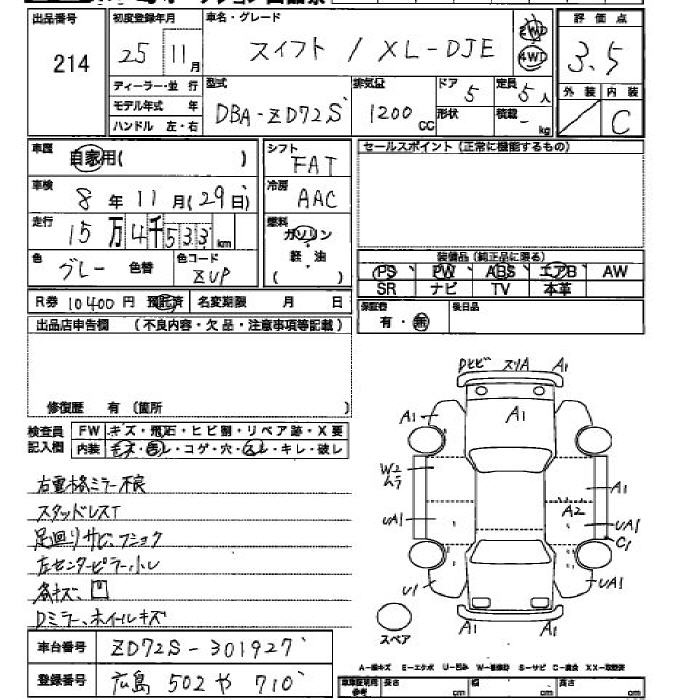 出品番号 初度登録年月 車名・グレード 評価点
214 25 11月 スイフト / XL-DJE 2WD 4WD 3.5
ディーラー・並行 型式 排気量 ドア 定員 外装 内装
モデル年式 年 DBA-ZD72S 1200 CC 5 5人 C
ハンドル 左・右 形状 積載 - kg
車歴 自家用( ) シフト FAT セールスポイント (正常に機能するもの)
車検 8年11月(29日) 冷房 AAC
走行 15万4千533km 燃料 ガソリン
色 グレー 色替 色コード ZUP 軽・油 ( )
装備品 (純正品に限る)
PS PW ABS エアB AW
SR ナビ TV 本革
R券 10400円 預託済 名変期限 月 日 保証書 有・無 後日品
出品店申告欄 (不良内容・欠品・注意事項等記載)
修復歴 有 (箇所 )
検査員記入欄 FW キズ・飛石・ヒビ割・リペア跡・X要
内装 キズ・汚レ・コゲ・穴・スレ・キレ・破レ
右電格ミラー不良
スタッドレスT
足廻りサビ、フショク
左センターピラー小レ
各キズ、凹
Dミラー、ホイルキズ
車台番号 ZD72S-301927
登録番号 広島 502 や 710
Dヒビ スリA A1
A1 A1
W2ムラ A1
A2
UA1 UA1
C1
U1 UA1
A1
スペア
A-線キズ E-エクボ U-凹み W-補修跡 S-サビ C-腐食 XX-取替済
車庫証明用参考 長さ cm 幅 cm 高さ cm